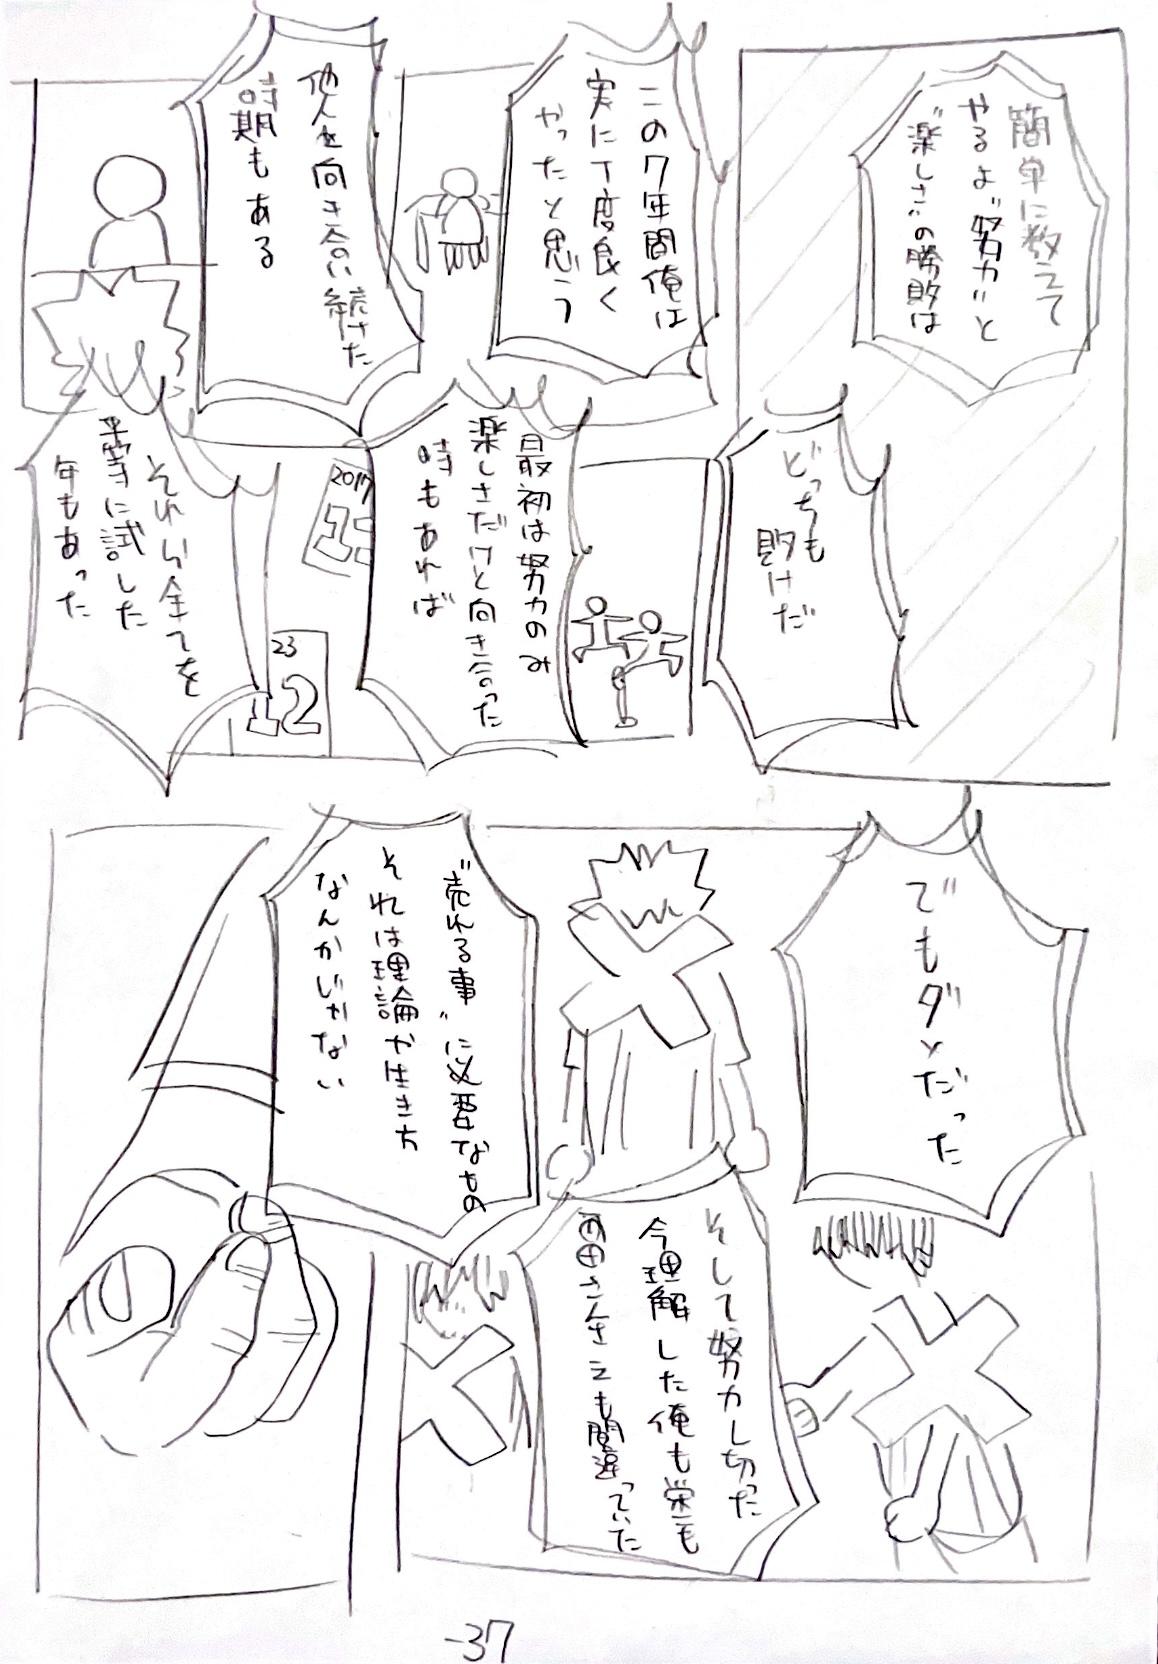 簡単に教えて
やるよ“努力”と
“楽しさ”の勝敗は
どっちも
敗けだ
この7年間俺は
実に丁度良く
やったと思う
他人と向き合い続けた
時期もある
最初は努力のみ
楽しさだけと向き合った
時もあれば
2017
それら全てを
平等に試した
年もあった
23
12
でもダメだった
そして努力し切った
今理解した俺も栄一も
さんさえも間違っていた
“売れる事”に必要なもの
それは理論や生き方
なんかじゃない
-37